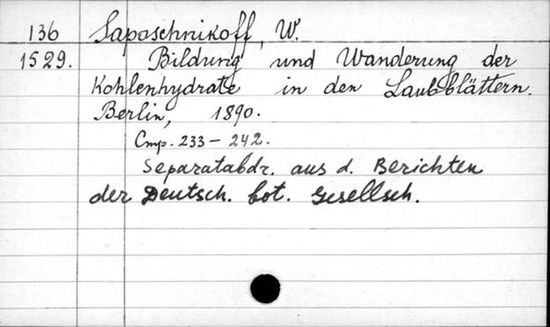 136 Saposchnikoff, W.
1529. Bildung und Wanderung der
Kohlenhydrate in den Laubblättern.
Berlin, 1890.
Стр. 233-242.
Separatabdr. aus d. Berichten
der Deutsch. bot. Gesellsch.